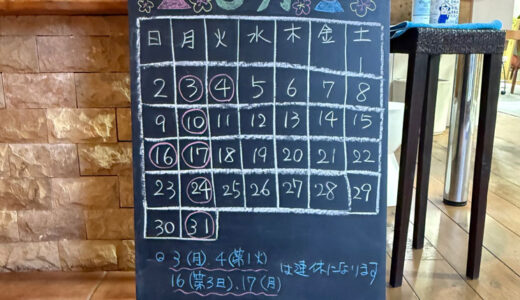 日 月 火 水 木 金 土
1
2 3 4 5 6 7 8
9 10 11 12 13 14 15
16 17 18 19 20 21 22
23 24 25 26 27 28 29
30 31
3(月)、4(第1火)
は連休になります
16(第3日)、17(月)